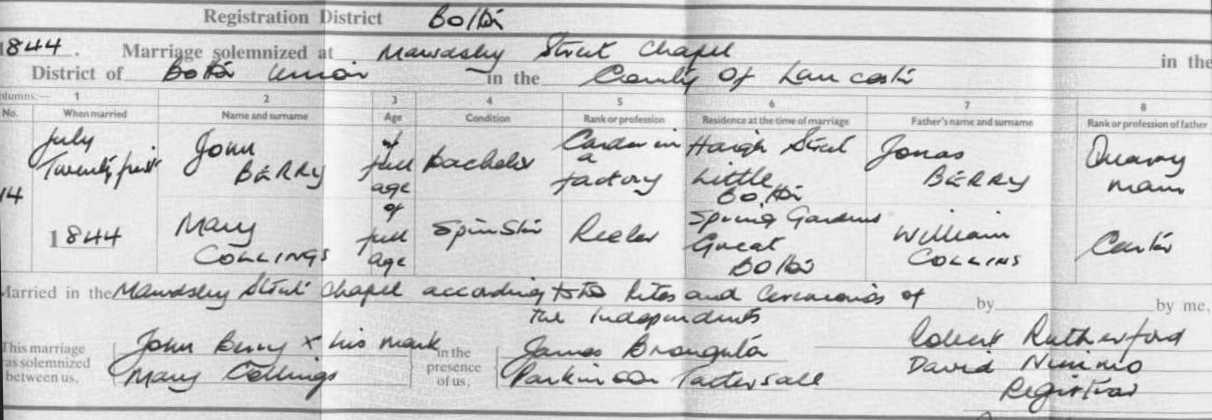 Registration District Bolton
1844. Marriage solemnized at Mawdsley Street Chapel in the
District of Bolton Union in the County of Lancaster
Columns:— 1 2 3 4 5 6 7 8
No. When married Name and surname Age Condition Rank or profession Residence at the time of marriage Father's name and surname Rank or profession of father
14 July Twenty first 1844
John BERRY of full age Bachelor Carder in a factory Haigh Street Little Bolton Jonas BERRY Quarry man
Mary COLLINGS of full age Spinster Reeler Spring Gardens Great Bolton William COLLINS Carter
Married in the Mawdsley Street Chapel according to the Rites and Ceremonies of the Independents by by me,
This marriage was solemnized between us,
John Berry x his mark
Mary Collings
in the presence of us,
James Broughton
Parkinson Tattersall
Robert Rutherford
David Nimmo
Registrar